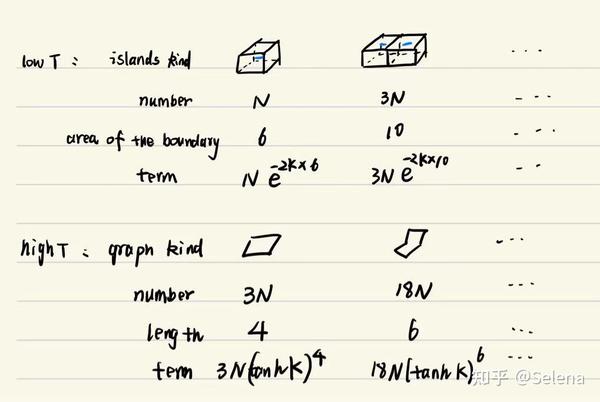 low T: islands kind ...
number N 3N ...
area of the boundary 6 10 ...
term N e^{-2K×6} 3N e^{-2K×10} ...
high T: graph kind ...
number 3N 18N ...
length 4 6 ...
term 3N(tanhK)^4 18N(tanhK)^6 ...
知乎 @Selena